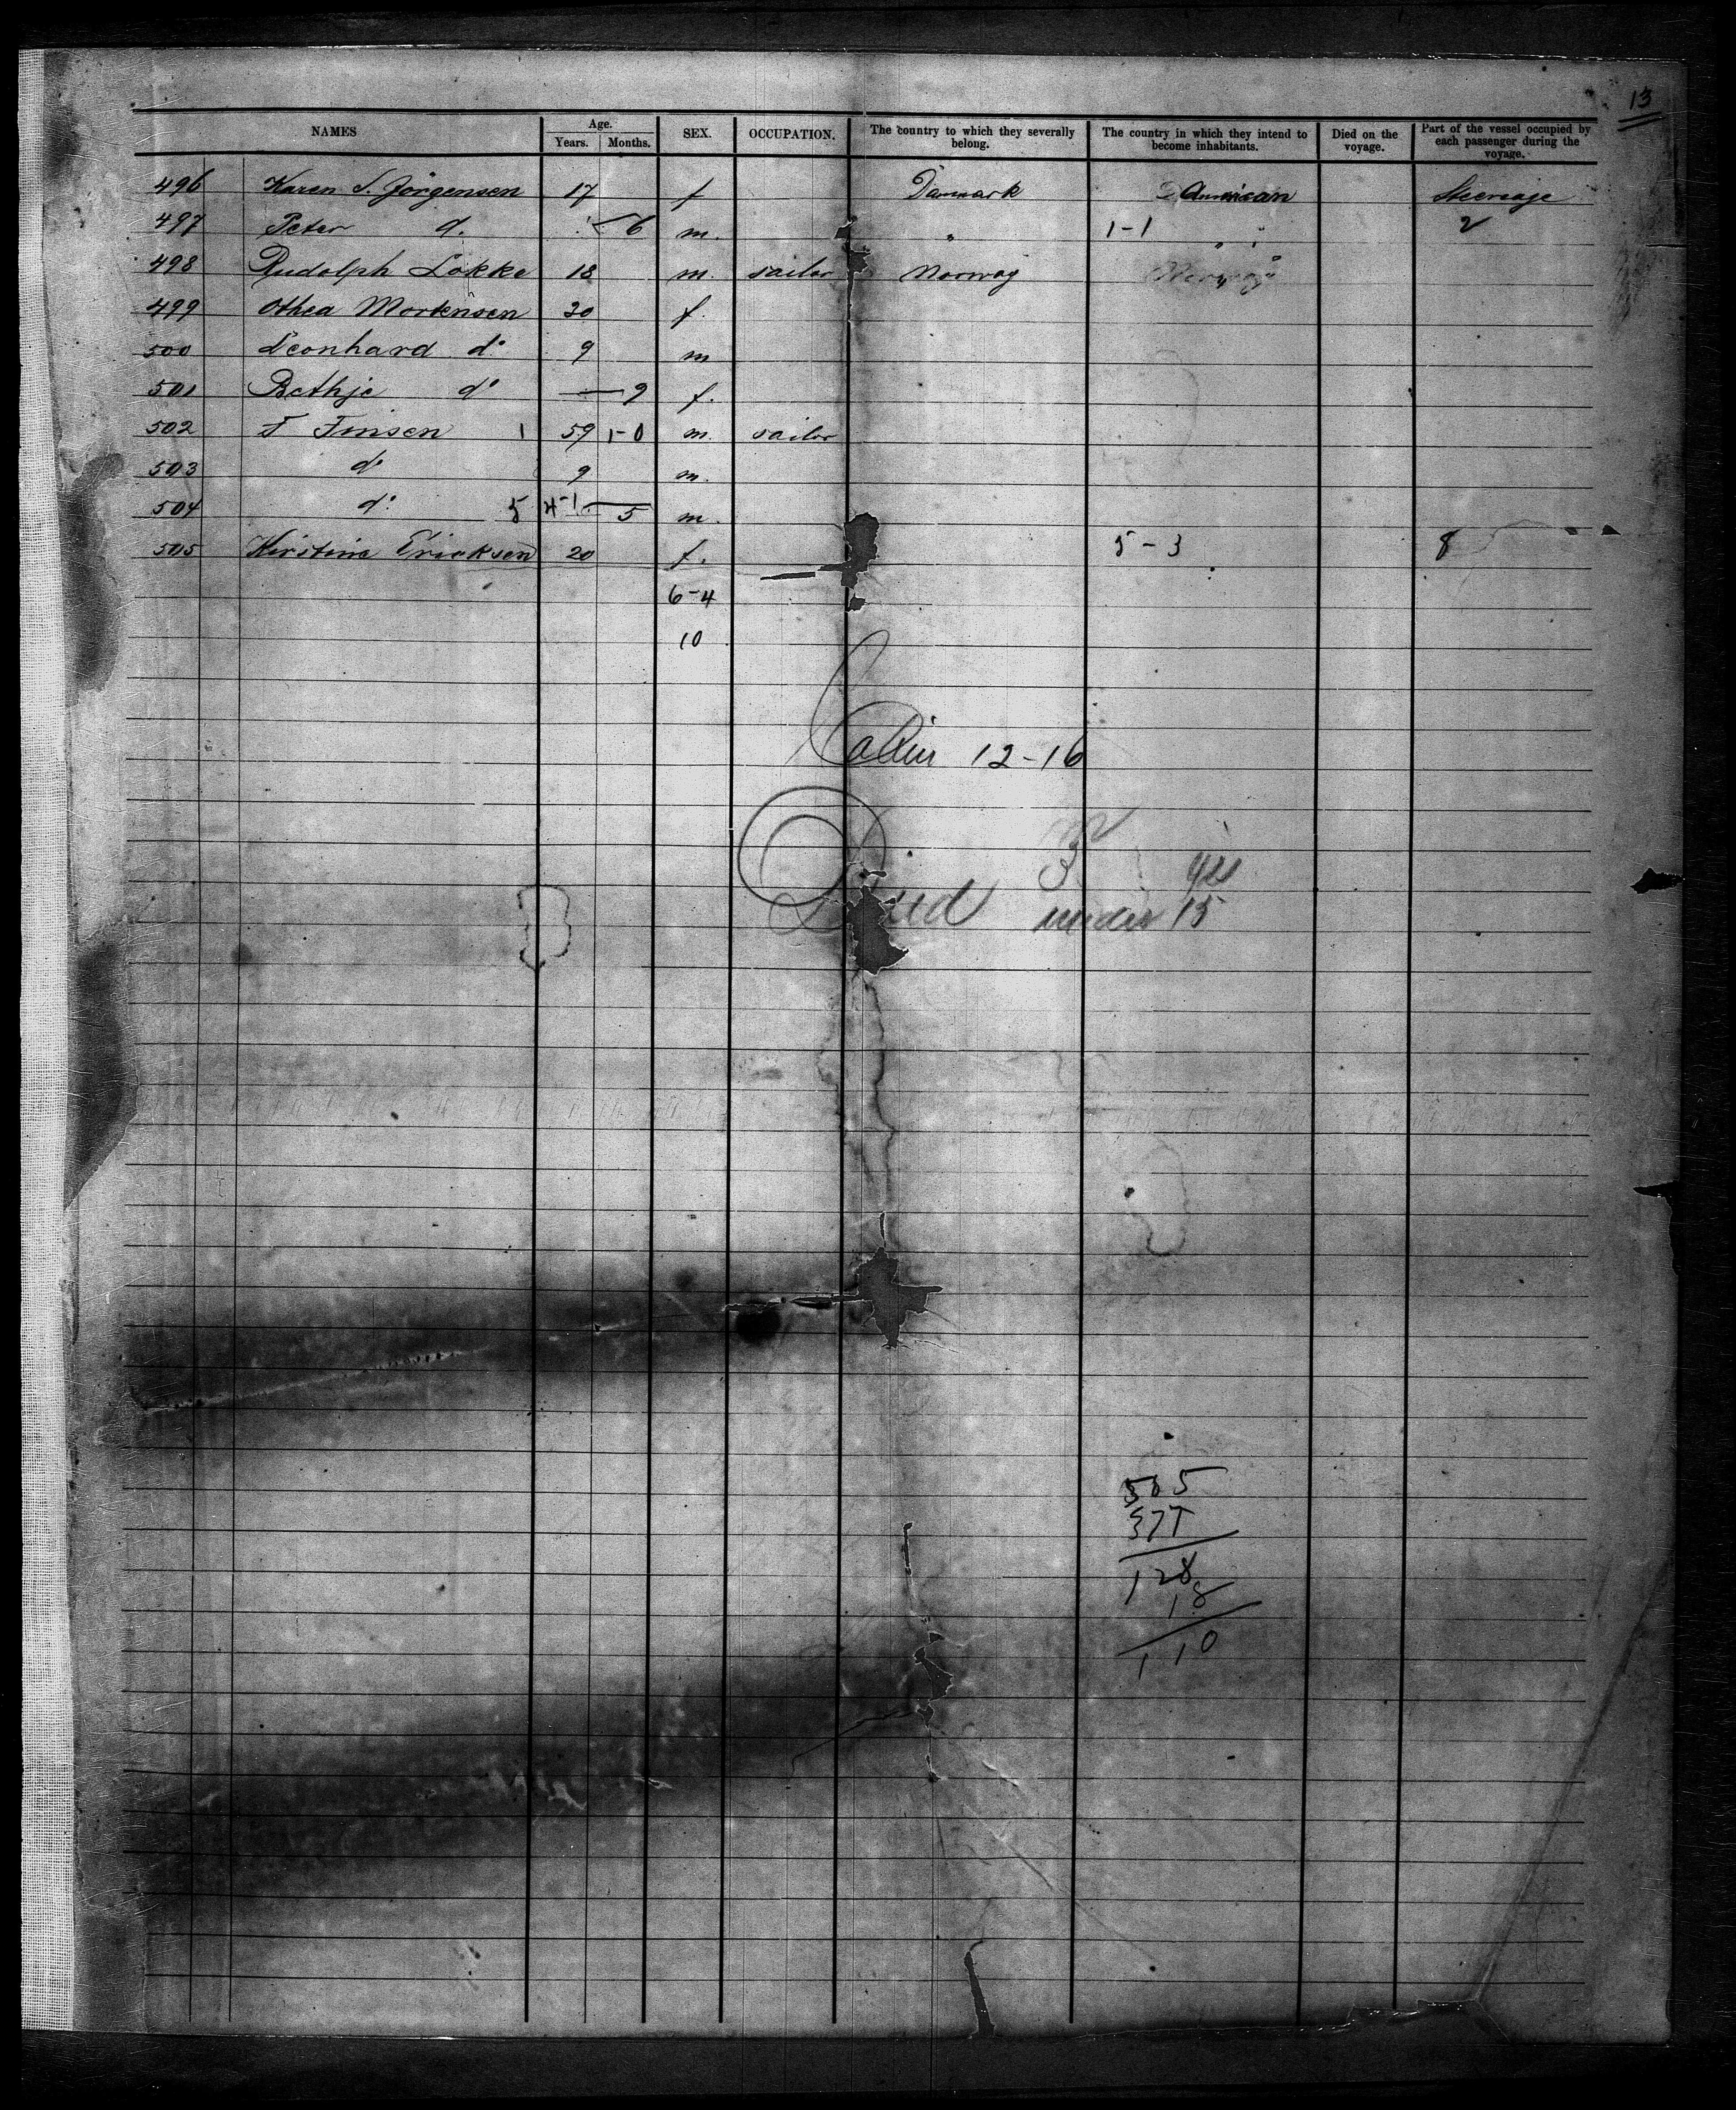 13
NAMES Age. Years. Months. SEX. OCCUPATION. The country to which they severally belong. The country in which they intend to become inhabitants. Died on the voyage. Part of the vessel occupied by each passenger during the voyage.
496 Karen S. Jörgensen 17 f Danmark American Steerage
497 Peter d. 6 m. " 1-1 " " 2
498 Rudolph Lokke 18 m. sailor Norway
499 Othea Mortensen 20 f.
500 Leonhard do 9 m
501 Bethje do 9 f.
502 F Finsen 1 59 1-0 m. sailor
503 do 9 m.
504 do 5 4-1 5 m.
505 Kirstine Ericksen 20 f. 5-3 8
6-4
10
Cabin 12-16
3
under 15
505
377
128
18
110